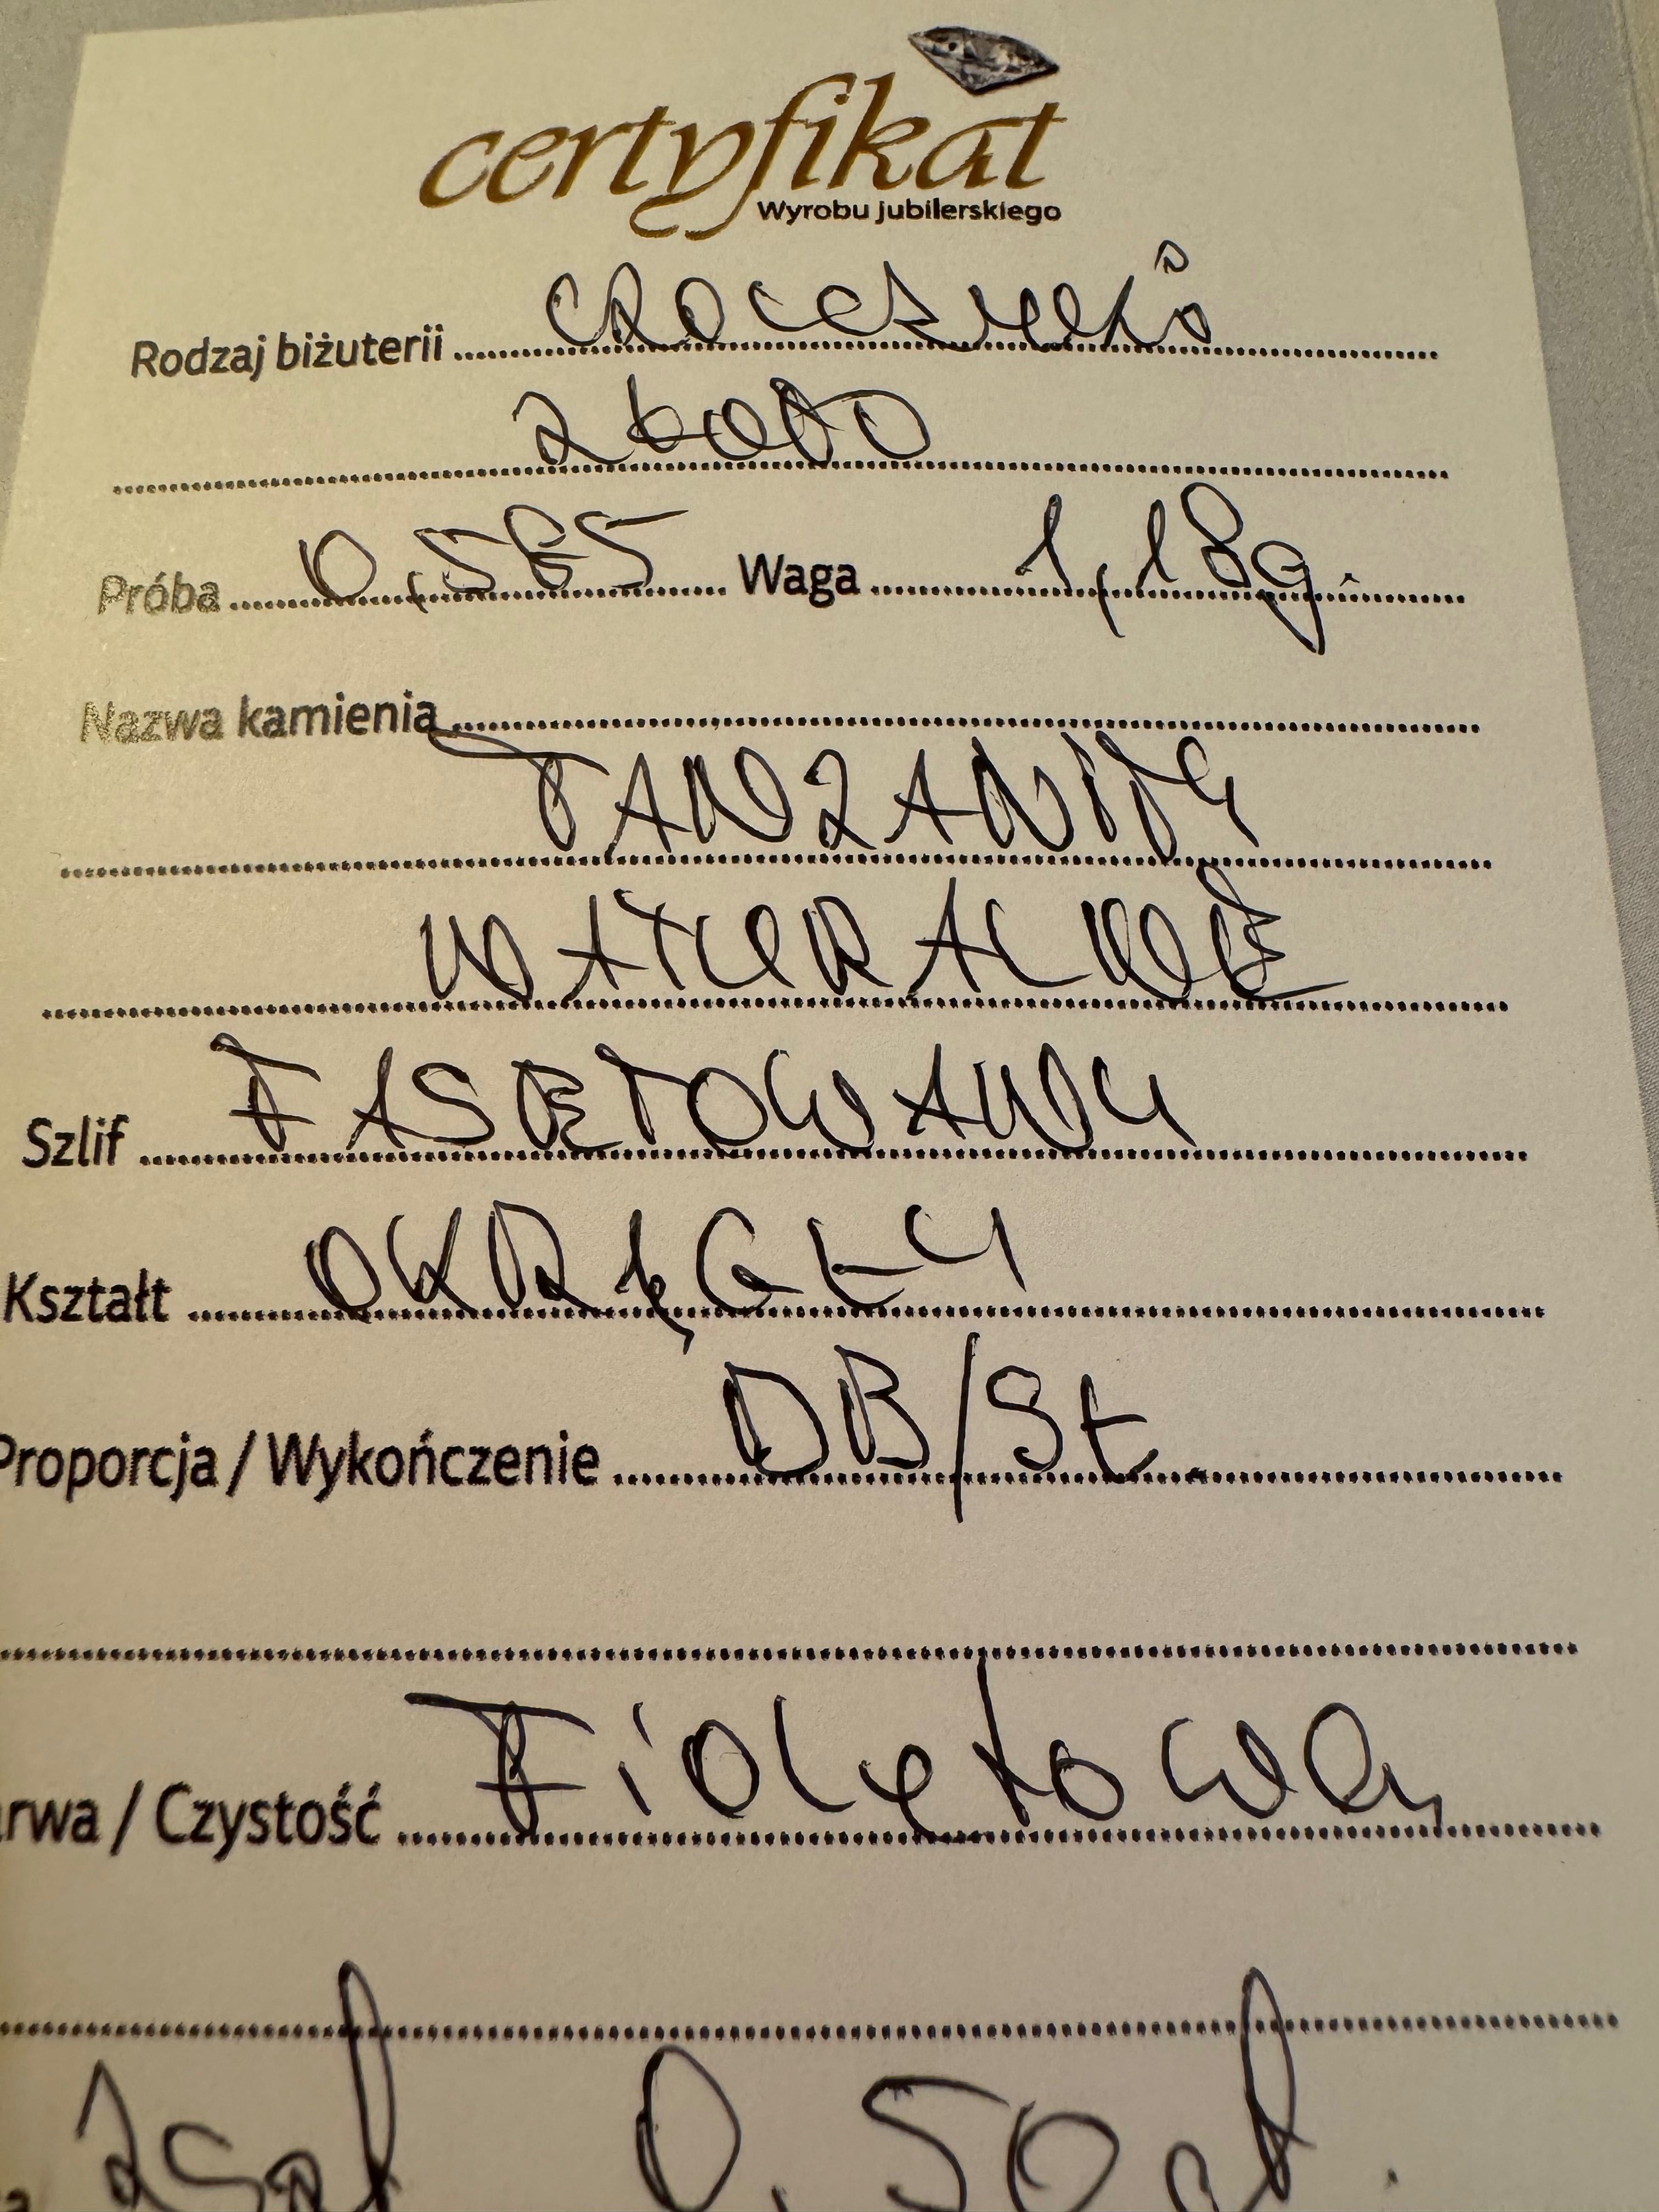 certyfikat
Wyrobu jubilerskiego
Rodzaj biżuterii
złoto
Próba 0,585 Waga 1,18g.
Nazwa kamienia
TANZANITY
NATURALNE
Szlif FASETOWANY
Kształt OKRĄGŁY
Proporcja / Wykończenie DB/St.
arwa / Czystość Fioletowa
2szt 0,50ct.